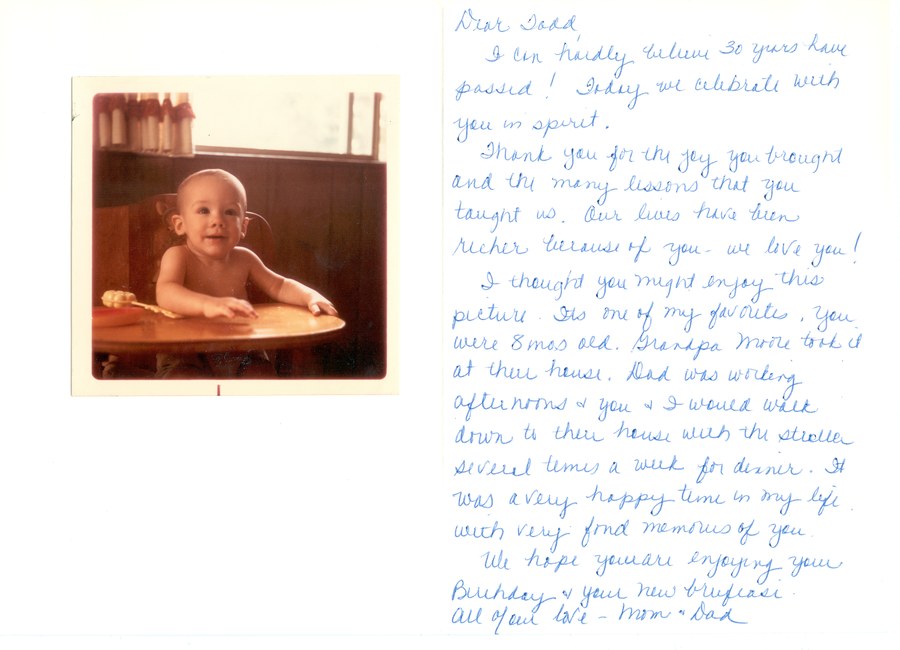 Dear Todd,
I can hardly believe 30 years have
passed! Today we celebrate with
you in spirit.
Thank you for the joy you brought
and the many lessons that you
taught us. Our lives have been
richer because of you - we love you!
I thought you might enjoy this
picture. Its one of my favorites. You
were 8 mos old. Grandpa Moore took it
at their house. Dad was working
afternoons & you & I would walk
down to their house with the stroller
several times a week for dinner. It
was a very happy time in my life
with very fond memories of you.
We hope you are enjoying your
Birthday & your new briefcase.
All of our love - Mom & Dad